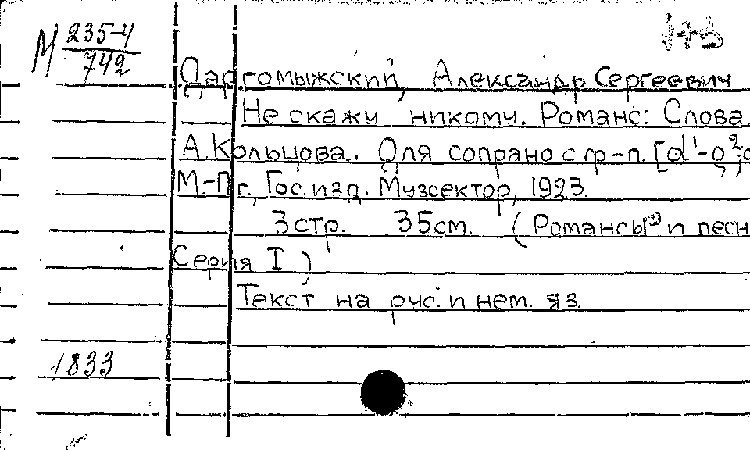 М 235-4
742
173
Даргомыжский, Александр Сергеевич
Не скажу никому. Романс: Слова
А. Кольцова. Для сопрано с ф-п. [d¹-g²;
М.-Пг., Гос. изд. Музсектор, 1923.
3 стр. 35 см. (Романсы и песн
Серия I)
Текст на рус. и нем. яз.
1833